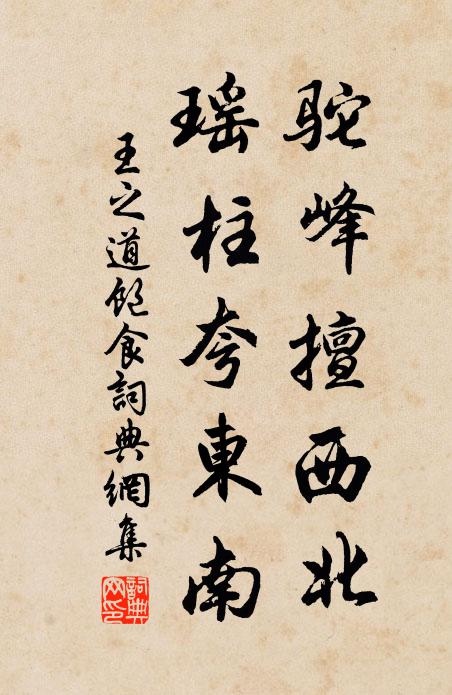 驼峰擅西北
瑶柱夸東南
王之道飽食詞典網集
詞典网印